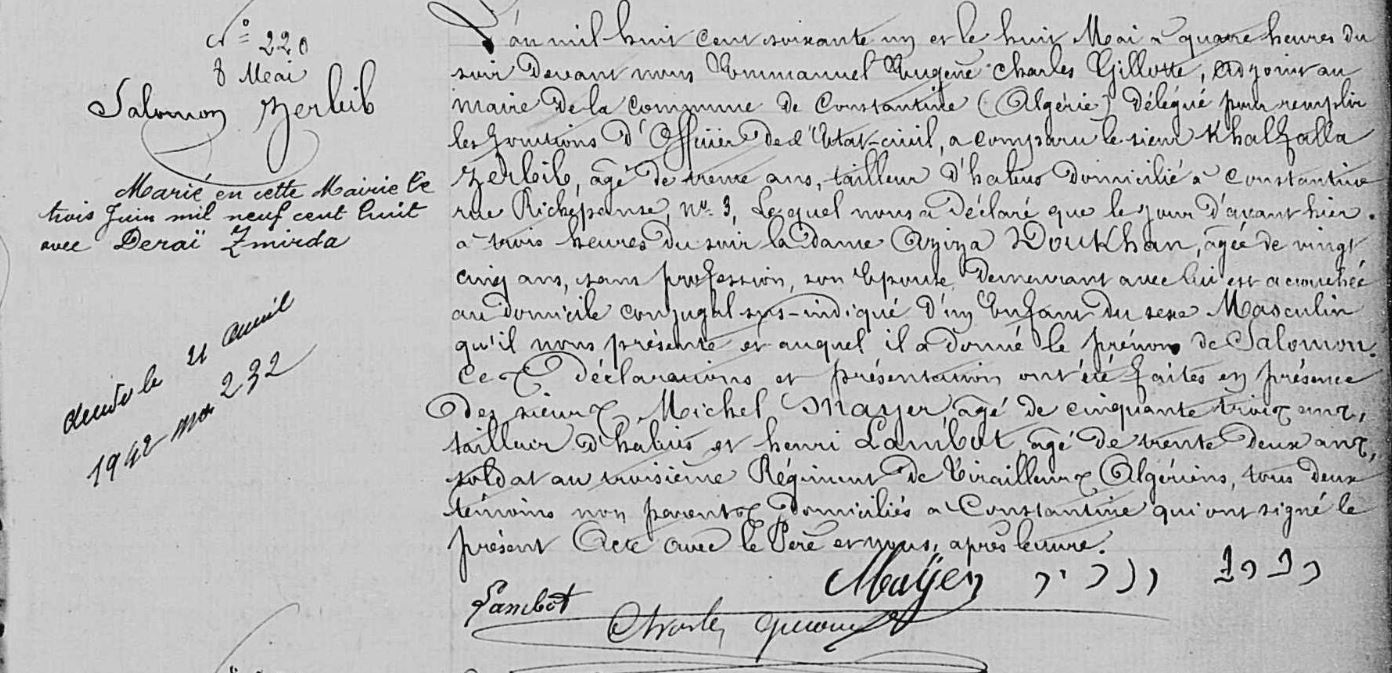 N° 220
8 Mai
Salomon Zerbib
Marié en cette Mairie le
trois Juin mil neuf cent huit
avec Deraï Zmirda
décédé le 21 avril
1942 no 232
L'an mil huit cent soixante un et le huit Mai à quatre heures du
soir devant nous Emmanuel Eugène Charles Gillotte, Adjoint au
maire de la Commune de Constantine (Algérie) délégué pour remplir
les fonctions d'Officier de l'Etat-civil, a comparu le sieur Khalfalla
Zerbib, âgé de trente ans, tailleur d'habits domicilié à Constantine
rue Richepanse, N° 3, Lequel nous a déclaré que le jour d'avant hier
à trois heures du soir la dame Aziza Doukhan, âgée de vingt
cinq ans, sans profession, son Epouse demeurant avec lui est accouchée
au domicile conjugal sus-indiqué d'un Enfant du sexe Masculin
qu'il nous présente et auquel il a donné le prénom de Salomon.
Ces déclarations et présentation ont été faites en présence
des sieurs Michel Mayer âgé de cinquante trois ans,
tailleur d'habits et henri Lambot, âgé de trente deux ans,
soldat au troisième Régiment de Tirailleurs Algériens, tous deux
témoins non parents domiciliés à Constantine qui ont signé le
présent Acte avec le Père et nous, après lecture.
Lambot Maÿer
Charles